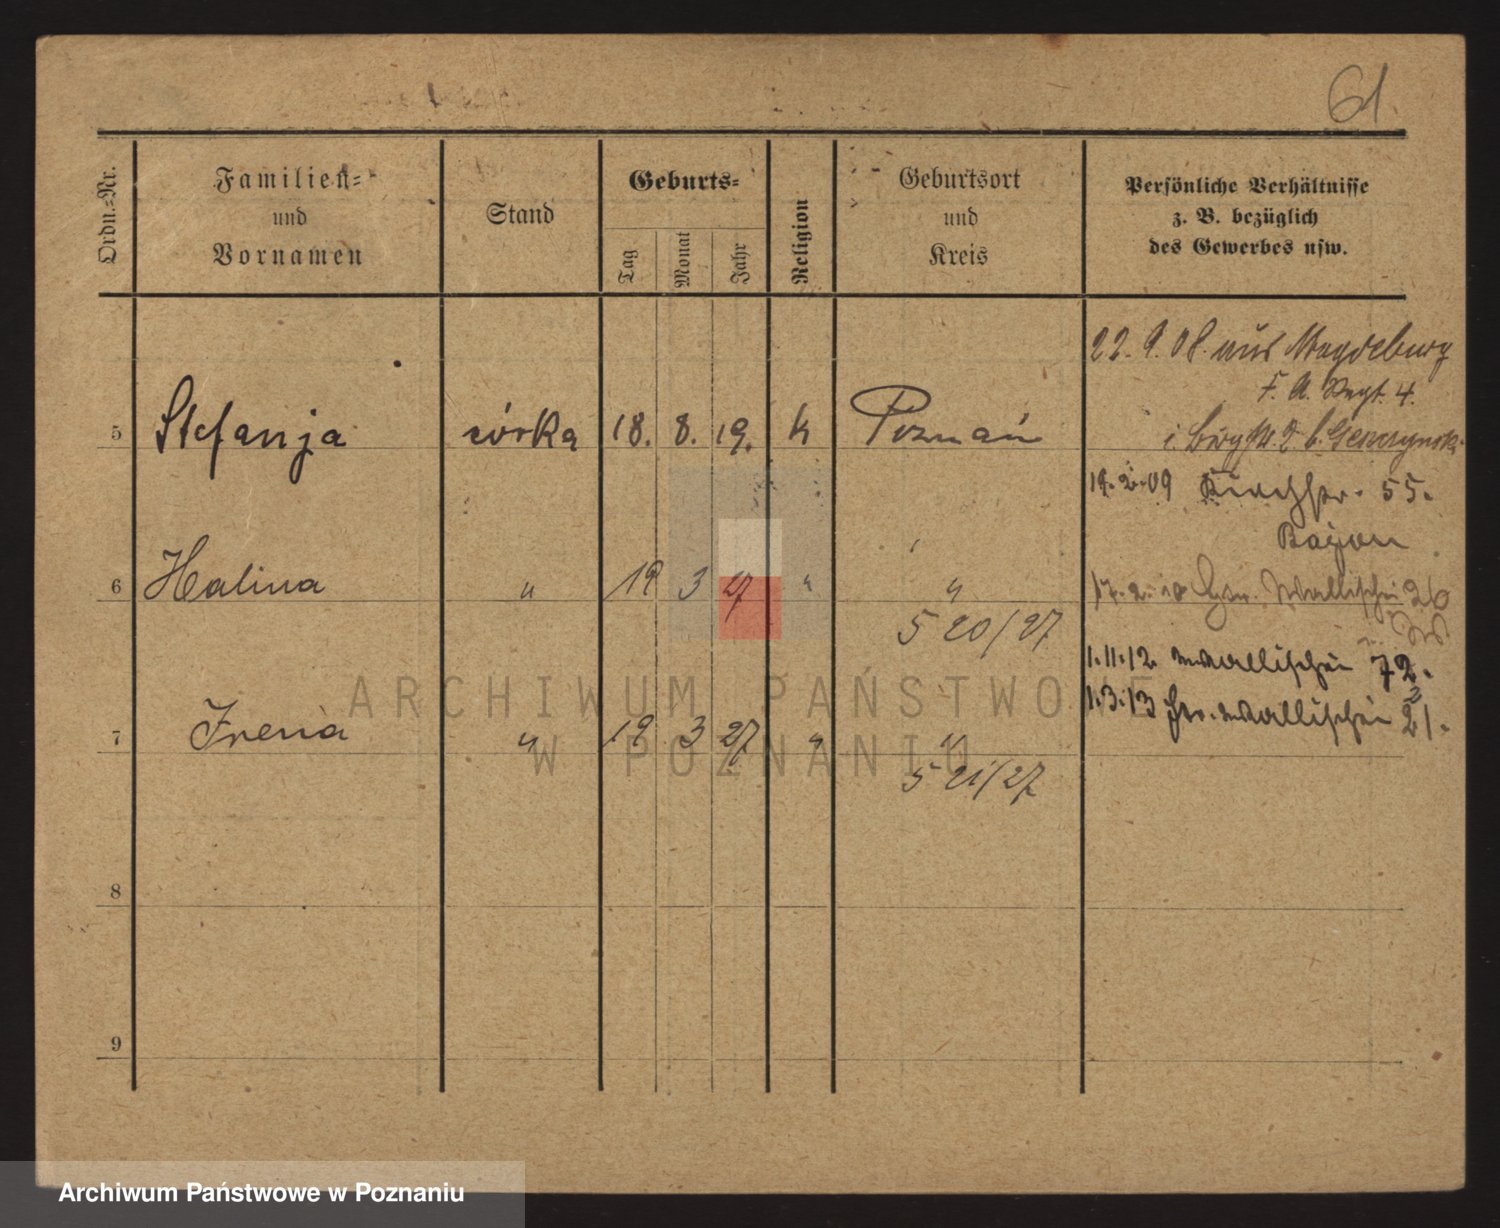 61.
Ordn.-Nr.
Familien-
und
Vornamen
Stand
Geburts-
Tag
Monat
Jahr
Religion
Geburtsort
und
Kreis
Persönliche Verhältnisse
z. B. bezüglich
des Gewerbes usw.
22. 9. 08. aus Magdeburg
F. A. Regt. 4.
5 Stefanja córka 18. 8. 19. k Poznań
19. 2. 09 55.
6 Halina " 19 3 27 " "
5 20/27
17. 2. Wallischei 26
1. 11. 12 Wallischei 72.
1. 3. 13 Wallischei 21.
7 Irena " 19 3 27 " "
5 21/27
8
9
ARCHIWUM PAŃSTWOWE
W POZNANIU
Archiwum Państwowe w Poznaniu